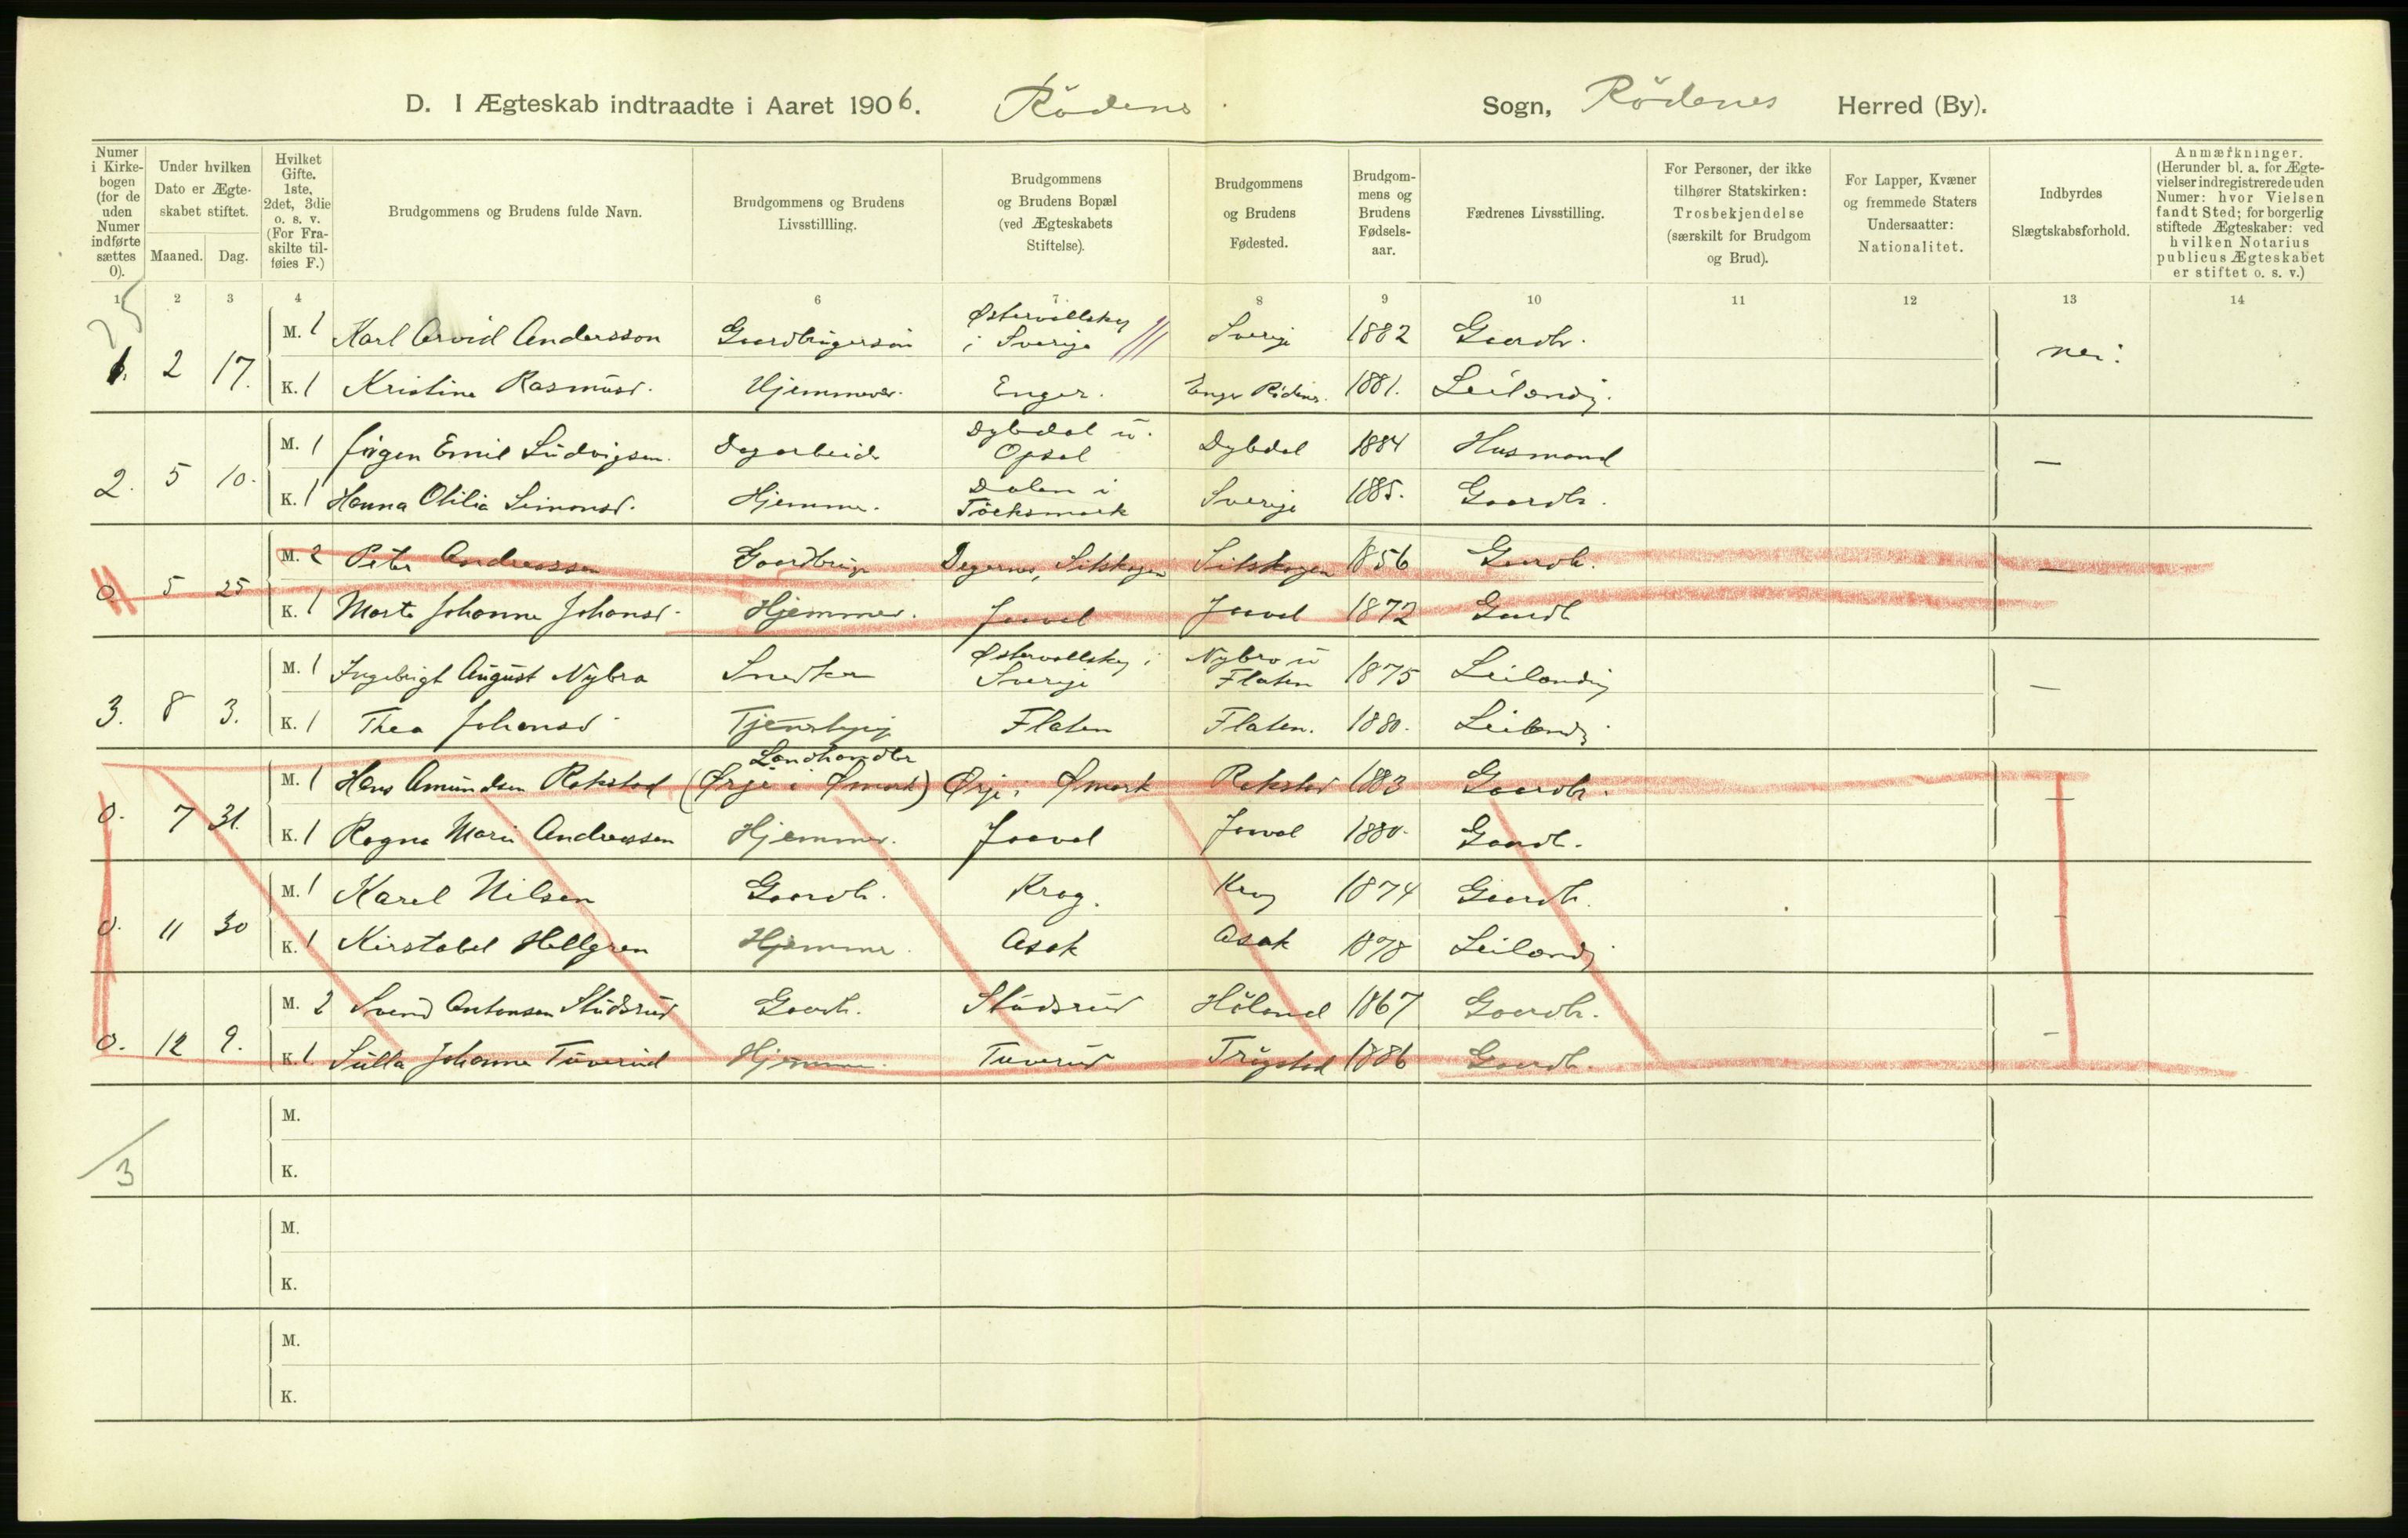 D. I Ægteskab indtraadte i Aaret 1906. Rödenes Sogn, Rödenes Herred (By).
Numer i Kirkebogen (for de uden Numer indførte sættes 0).
Under hvilken Dato er Ægteskabet stiftet.
Maaned. Dag.
Hvilket Gifte. 1ste, 2det, 3die o. s. v. (For Fraskilte tilføies F.)
Brudgommens og Brudens fulde Navn.
Brudgommens og Brudens Livsstillling.
Brudgommens og Brudens Bopæl (ved Ægteskabets Stiftelse).
Brudgommens og Brudens Fødested.
Brudgommens og Brudens Fødselsaar.
Fædrenes Livsstilling.
For Personer, der ikke tilhører Statskirken: Trosbekjendelse (særskilt for Brudgom og Brud).
For Lapper, Kvæner og fremmede Staters Undersaatter: Nationalitet.
Indbyrdes Slægtskabsforhold.
Anmærkninger. (Herunder bl. a. for Ægtevielser indregistrerede uden Numer: hvor Vielsen fandt Sted; for borgerlig stiftede Ægteskaber: ved hvilken Notarius publicus Ægteskabet er stiftet o. s. v.)
1 2 3 4 6 7 8 9 10 11 12 13 14
25
1. 2 17. M. 1 Karl Arvid Andersson Gaardbrugersøn Østervallskog i Sverige Sverige 1882 Gaardb. nei
K. 1 Kristine Rasmusd. Hjemmevær. Enger. Enger Rödenes. 1881. Leilændig.
2. 5 10. M. 1 Jörgen Emil Ludvigsen. Dagarbeid. Dybdal u. Opsal Dybdal 1884 Husmand —
K. 1 Hanna Otilia Simonsd. Hjemme. Dalen i Töcksmark Sverige 1885. Gaardb.
0 5 25 M. 2 Peter Andreassen Gaardbruger Degernes, Sitskogen Sitskogen 1856 Gaardb. —
K. 1 Marte Johanne Johansd. Hjemmev. Joval Joval 1872 Gaardb
3. 8 3. M. 1 Ingebrigt August Nybro Snedker Østervallskog i Sverige Nybro u Flaten 1875 Leilændig —
K. 1 Thea Johansd. Tjenestepig Flaten Flaten. 1880. Leilændig
0. 7 31. M. 1 Hans Amundsen Rakstad Landhandler (Ørje i Ømark) Ørje i Ømark Rakstad 1883 Gaardb. —
K. 1 Ragna Marie Andreassen Hjemmev. Joaval Joval 1880. Gaardb.
0. 11 30 M. 1 Karel Nilsen Gaardb. Krog. Krog 1874 Gaardb. —
K. 1 Kirstabel Hellgren Hjemme Asak Asak 1878 Leilændig
0. 12 9. M. 2 Svend Antonsen Studsrud Gaardb. Studsrud Höland 1867 Gaardb. —
K. 1 Julla Johanne Tuverud Hjemme. Tuverud Trögstad 1886 Gaardb.
M.
K.
3
M.
K.
M.
K.